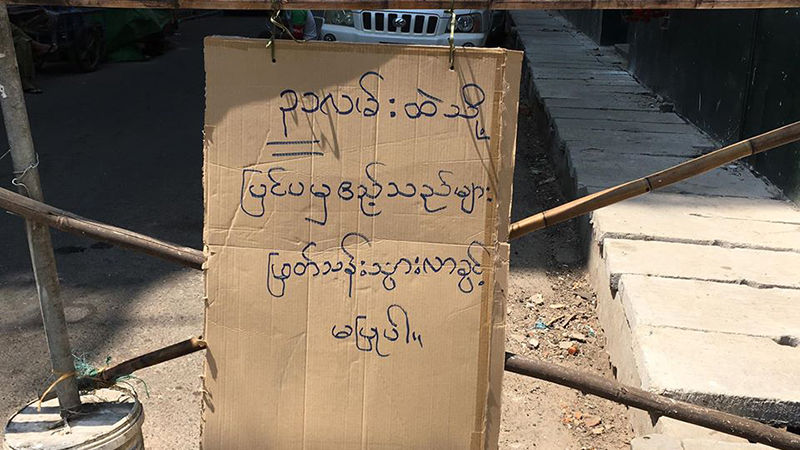 ၃၁လမ်းထဲသို့
ပြင်ပမှဧည့်သည်များ
ဖြတ်သန်းသွားလာခွင့်
မပြုပါ။